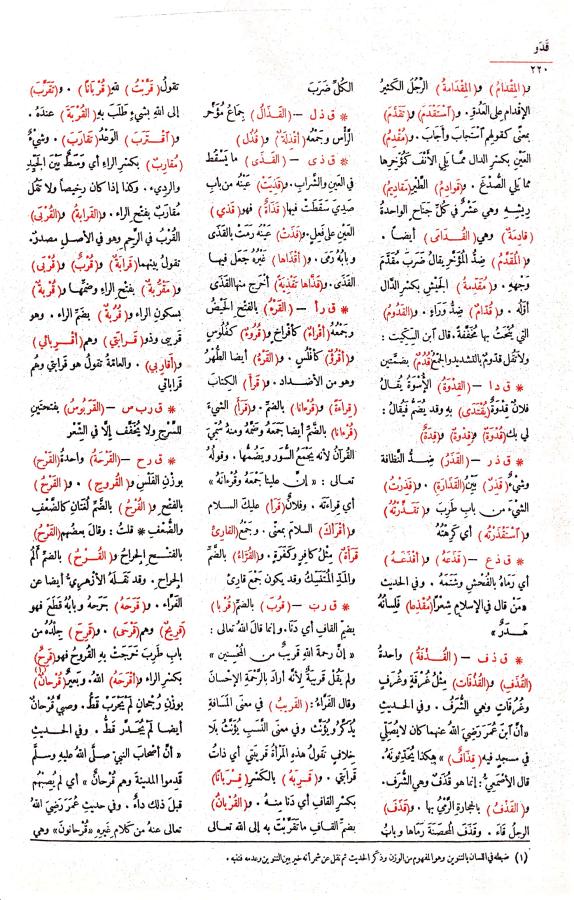 قدو
٢٢٠
و(المِقدامُ) و(المِقدامَةُ) الرَّجُل الكثيرُ
الإقدام على العَدُوّ . و(ٱستَقْدَمَ) و(تَقَدَّمَ)
بمعنًى كقولهم ٱستجابَ وأجابَ . و(مُقْدِمُ)
العَينِ بكسر الدال ممّا يَلي الأنْفَ كُؤْخِرها
مما يلي الصُّدْغَ . و(قَوادِمُ) الطَّيْرِ(مَقاديمُ)
ريشِه وهي عَشْرٌ في كلِّ جَناح الواحدةُ
(قادِمَةٌ) وهي(القُدامَى) أيضاً .
و(المُقَدَّمُ) ضِدُّ المُؤَخَّرِ يقالُ ضَرَبَ مُقَدَّمَ
وَجْهِهِ . و(مُقَدِّمَةُ) الجَيْش بكسر الدّالِ
أَوَّلُه . و(قُدّامُ) ضِدُّ وَراءَ . و(القَدُومُ)
التي يُنْحَتُ بها مُخَفَّفةٌ. قال ٱبن السِّكِّيت :
ولا تَقُل قَدّومٌ بالتشديد والجمعُ(قُدُمٌ) بضمّتين
* ق د ا – (القِدْوَةُ) الأُسْوَةُ يُقالُ
فلانٌ قِدْوَةٌ(يُقْتَدَى) به وقد يُضَمُّ فيُقالُ :
لي بك(قُدْوَةٌ) و(قِدْوَةٌ) و(قِدَةٌ)
* ق ذ ر – (القَذَرُ) ضِدُّ النَّظافة
وشيءٌ(قَذِرٌ) بَيِّنُ(القَذارَةِ) . و(قَذِرْتُ)
الشيءَ من باب طَرِبَ و(تَقَذَّرْتُهُ)
و(ٱستَقْذَرْتُه) أي كَرِهْتُهُ
* ق ذ ع – (قَذَعَهُ) و(أقْذَعَهُ)
أي رَماهُ بالفُحْشِ وشَتَمَهُ . وفي الحديث
«مَنْ قال في الإسلامِ شِعْرًا(مُقْذِعًا) فلِسانُهُ
هَدَرٌ»
* ق ذ ف – (القُذْفَةُ) واحدةُ
(القُذَفِ) و(القُذُفاتِ) مِثلُ غُرْفَةٍ وغُرَفٍ
وغُرُفاتٍ وهي الشُّرَفُ . وفي الحديث
«أنّ ٱبنَ عُمَرَ رَضِيَ اللهُ عنهما كان لا يُصَلّي
في مسجدٍ فيه(قِذافٌ)» هكذا يُحَدّثونَه.
قال الأصمَعيُّ: إنما هو قُذَفٌ وهي الشُّرَف.
و(القَذْفُ) بالحِجارةِ الرَّمْيُ بها . و(قَذَفَ)
الرجلُ قاءَ . وقَذَفَ المُحْصَنَةَ رَماها وبابُ
الكلِّ ضَرَبَ
* ق ذ ل – (القَذالُ) جِماعُ مُؤَخَّرِ
الرَّأس وجَمْعُهُ(أقْذِلَةٌ) و(قُذُلٌ)
* ق ذ ى – (القَذَى) ما يَسْقُط
في العين والشَّراب. و(قَذِيَتْ) عَيْنُه من باب
صَدِيَ سَقَطَتْ فيها(قَذاةٌ) فهو(قَذي)
العَيْنِ على فَعِلٍ. و(قَذَتْ) عَيْنُه رَمَتْ بالقَذَى
وبابُه رَمَى . و(أقْذاها) غَيْرُه جَعَل فيها
القَذَى. و(قَذّاها تَقْذِيَةً) أخرجَ منها القَذَى
* ق ر أ – (القَرْءُ) بالفتح الحَيْضُ
وجَمعُهُ (أقْراءٌ) كأفْراخٍ و(قُرُوءٌ) كفُلُوسٍ
و(أقْرُؤٌ) كأفْلُسٍ . و(القَرْءُ) أيضا الطُّهْرُ
وهو من الأضداد . و(قَرَأَ) الكِتابَ
(قِراءَةً) و(قُرْءانًا) بالضم . و(قَرَأَ) الشيءَ
(قُرْءانًا) بالضَّمِّ أيضا جَمَعَهُ وضَمَّهُ ومنه سُمِّيَ
القُرآنُ لأنه يَجْمَعُ السُّوَرَ ويَضُمُّها . وقولُه
تعالى : «إن علينا جَمْعَهُ وقُرءانَهُ»
أي قِراءَتَه . وفلانٌ(قَرَأَ) عليك السلامَ
و(أقْرَأَكَ) السلامَ بمعنى . وجَمعُ(القارِئِ
قَرَأَةٌ) مثلُ كافِرٍ وكَفَرَةٍ . و(القُرّاءُ) بالضَّمِّ
والمَدِّ المُتَنَسِّكُ وقد يكون جَمْعَ قارِئٍ
* ق ر ب – (قَرُبَ) بالضم(قُرْبًا)
بضم القاف أي دَنا. وإنما قال اللهُ تعالى :
«إنّ رَحمةَ اللهِ قريبٌ من المُحْسِنين»
ولم يَقُل قَريبَةٌ لأنه أرادَ بالرَّحمةِ الإحْسانَ
وقال الفَرّاءُ: (القَريبُ) في معنَى المَسافةِ
يُذَكَّر ويُؤَنَّث وفي معنَى النَّسَبِ يُؤَنَّثُ بلا
خِلافٍ تقول هذه المَرأةُ قَريبَتي أي ذاتُ
قَرابَتي . و(قَرِبَهُ) بالكسْر(قِرْبانًا)
بكسر القاف أي دَنا مِنهُ . و(القُرْبانُ)
بضَمِّ القافِ ما تَقَرَّبْتَ به إلى اللهِ تعالى
تقولُ (قَرَّبْتُ) للهِ(قُرْبانًا) . و(تَقَرَّبَ)
إلى اللهِ بشيءٍ طَلَبَ به(القُرْبَةَ) عنده .
و(ٱقْتَرَبَ) الوَعْدُ(تَقارَبَ) . وشيءٌ
(مُقارِبٌ) بكسر الراءِ أي وَسَطٌ بَيْنَ الجَيِّدِ
والرَّديء. وكذا إذا كان رَخيصاً ولا تَقُل
مُقارَب بفتح الراء. و(القَرابَةُ) و(القُرْبَى)
القُرْبُ في الرَّحِم وهو في الأصل مصدرٌ.
تقولُ بينهما(قَرابَةٌ) و(قُرْبٌ) و(قُرْبَى)
و(مَقْرُبَةٌ) بفتح الراء وضَمِّها و(قُرْبَةٌ)
بسكون الراء و(قُرُبَةٌ) بضمّ الراء . وهو
قَريبي وذُو (قَرابَتي) وهم(أقْرِبائي)
و(أقارِبي) . والعامّةُ تقول هو قَرابَتي وهُم
قَراباتي
* ق ر ب س – (القَرَبُوسُ) بفتحتين
للسَّرْج ولا يُخَفَّف إلّا في الشِّعْر
* ق ر ح – (القَرْحَةُ) واحدةُ(القَرْحِ)
بوزن الفَلْس و(القُروحِ) . و(القَرْحُ)
بالفتح و(القُرْحُ) بالضَّمِّ لُغتانِ كالضَّعْف
والضُّعْف * قلتُ : وقال بعضُهم(القَرْحُ)
بالفتح الجِراحُ و(القُرْحُ) بالضم ألَمُ
الجِراح . وقد نَقَلَهُ الأزهَريُّ أيضا عن
الفَرّاء . و(قَرَحَهُ) جَرَحه وبابُه قَطَعَ فهو
(قَرِيحٌ) وهم(قَرْحَى) . و(قَرِحَ) جِلْدُه من
باب طَرِبَ خَرَجَتْ به القُروحُ فهو(قَرِحٌ)
بكسر الراءِ و(أقْرَحَهُ) اللهُ. وبَعيرٌ(قُرْحانٌ(١))
بوزن رُجْحانٍ لم يَجْرَبْ قَطُّ. وصبيٌّ قُرْحانٌ
أيضا لم يُجَدَّرْ قَطُّ . وفي الحديث
«أنّ أصحابَ النبيّ صلَّى اللهُ عليه وسلّم
قَدِموا المدينةَ وهم قُرْحانٌ» أي لم يُصِبْهُم
قبلَ ذلك داءٌ . وفي حديث عُمَرَ رَضِيَ اللهُ
تعالى عنه من كلامِ غَيرِه «قُرْحانون» وهي
(١) ضبطه في اللسان بالتنوين وهو المفهوم من الوزن وذكر الحديث ثم نقل عن شمر أنه خير بين التنوين وعدمه فتنبه .